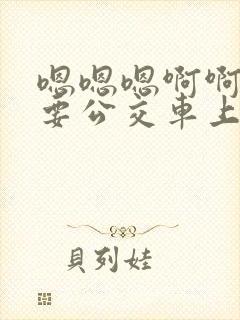 嗯嗯嗯啊啊
要公交車上
貝列娃